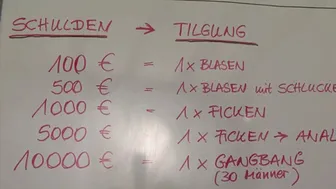 SCHULDEN → TILGUNG
100 € = 1 x BLASEN
500 € = 1 x BLASEN mit SCHLUCKE
1000 € = 1 x FICKEN
5000 € = 1 x FICKEN → ANAL
10000 € = 1 x GANGBANG
(30 Männer)